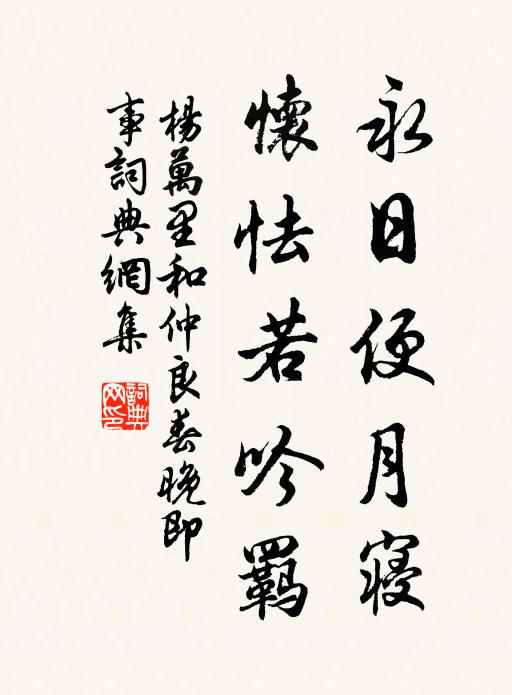 永日便月寢
懷怯若吟羈
楊萬里和仲良春晚即
事詞典網集
詞典
网印